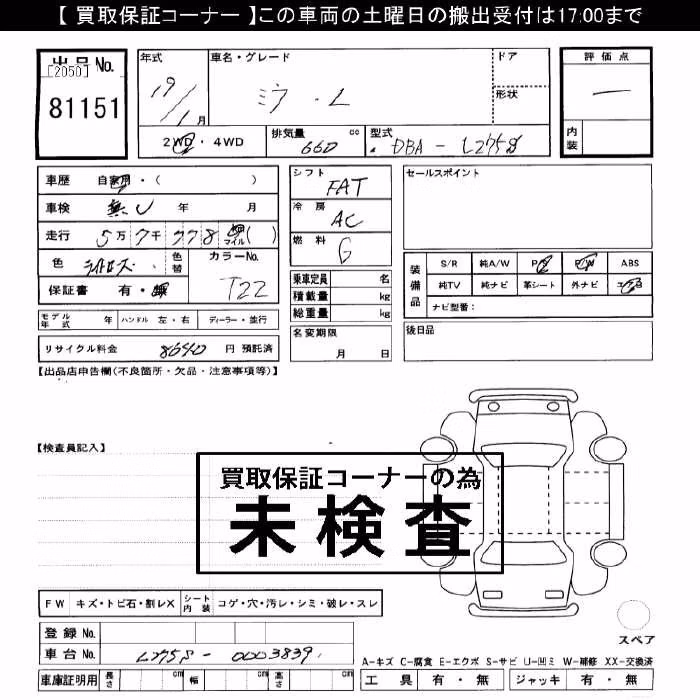 【 買取保証コーナー 】この車両の土曜日の搬出受付は17:00まで
出品No.
[2050]
81151
年式
19/1月
車名・グレード
ミラ・L
ドア
形状
評価点
ー
内装
2WD・4WD
排気量
660
cc
型式
DBA - L275S
車歴
自家用・( )
車検
無し 年 月
走行
5万7千778
マイル( )
色
色替
カラーNo.
T22
保証書
有・無
シフト
FAT
冷房
AC
燃料
G
乗車定員
名
積載量
kg
総重量
kg
セールスポイント
装備品
S/R
純A/W
P/S
P/W
ABS
純TV
純ナビ
革シート
外ナビ
ナビ型番:
モデル年式
年
ハンドル 左・右
ディーラー・並行
名変期限
月 日
後日品
リサイクル料金
8640
円 預託済
【出品店申告欄(不良箇所・欠品・注意事項等)】
【検査員記入】
買取保証コーナーの為
未検査
FW
キズ・トビ石・割レX
シート内装
コゲ・穴・汚レ・シミ・破レ・スレ
登録No.
車台No.
L275S - 0003839
スペア
A-キズ C-腐食 E-エクボ S-サビ U-凹ミ W-補修 XX-交換済
車庫証明用
長さ
cm
幅
cm
高さ
cm
工具
有・無
ジャッキ
有・無